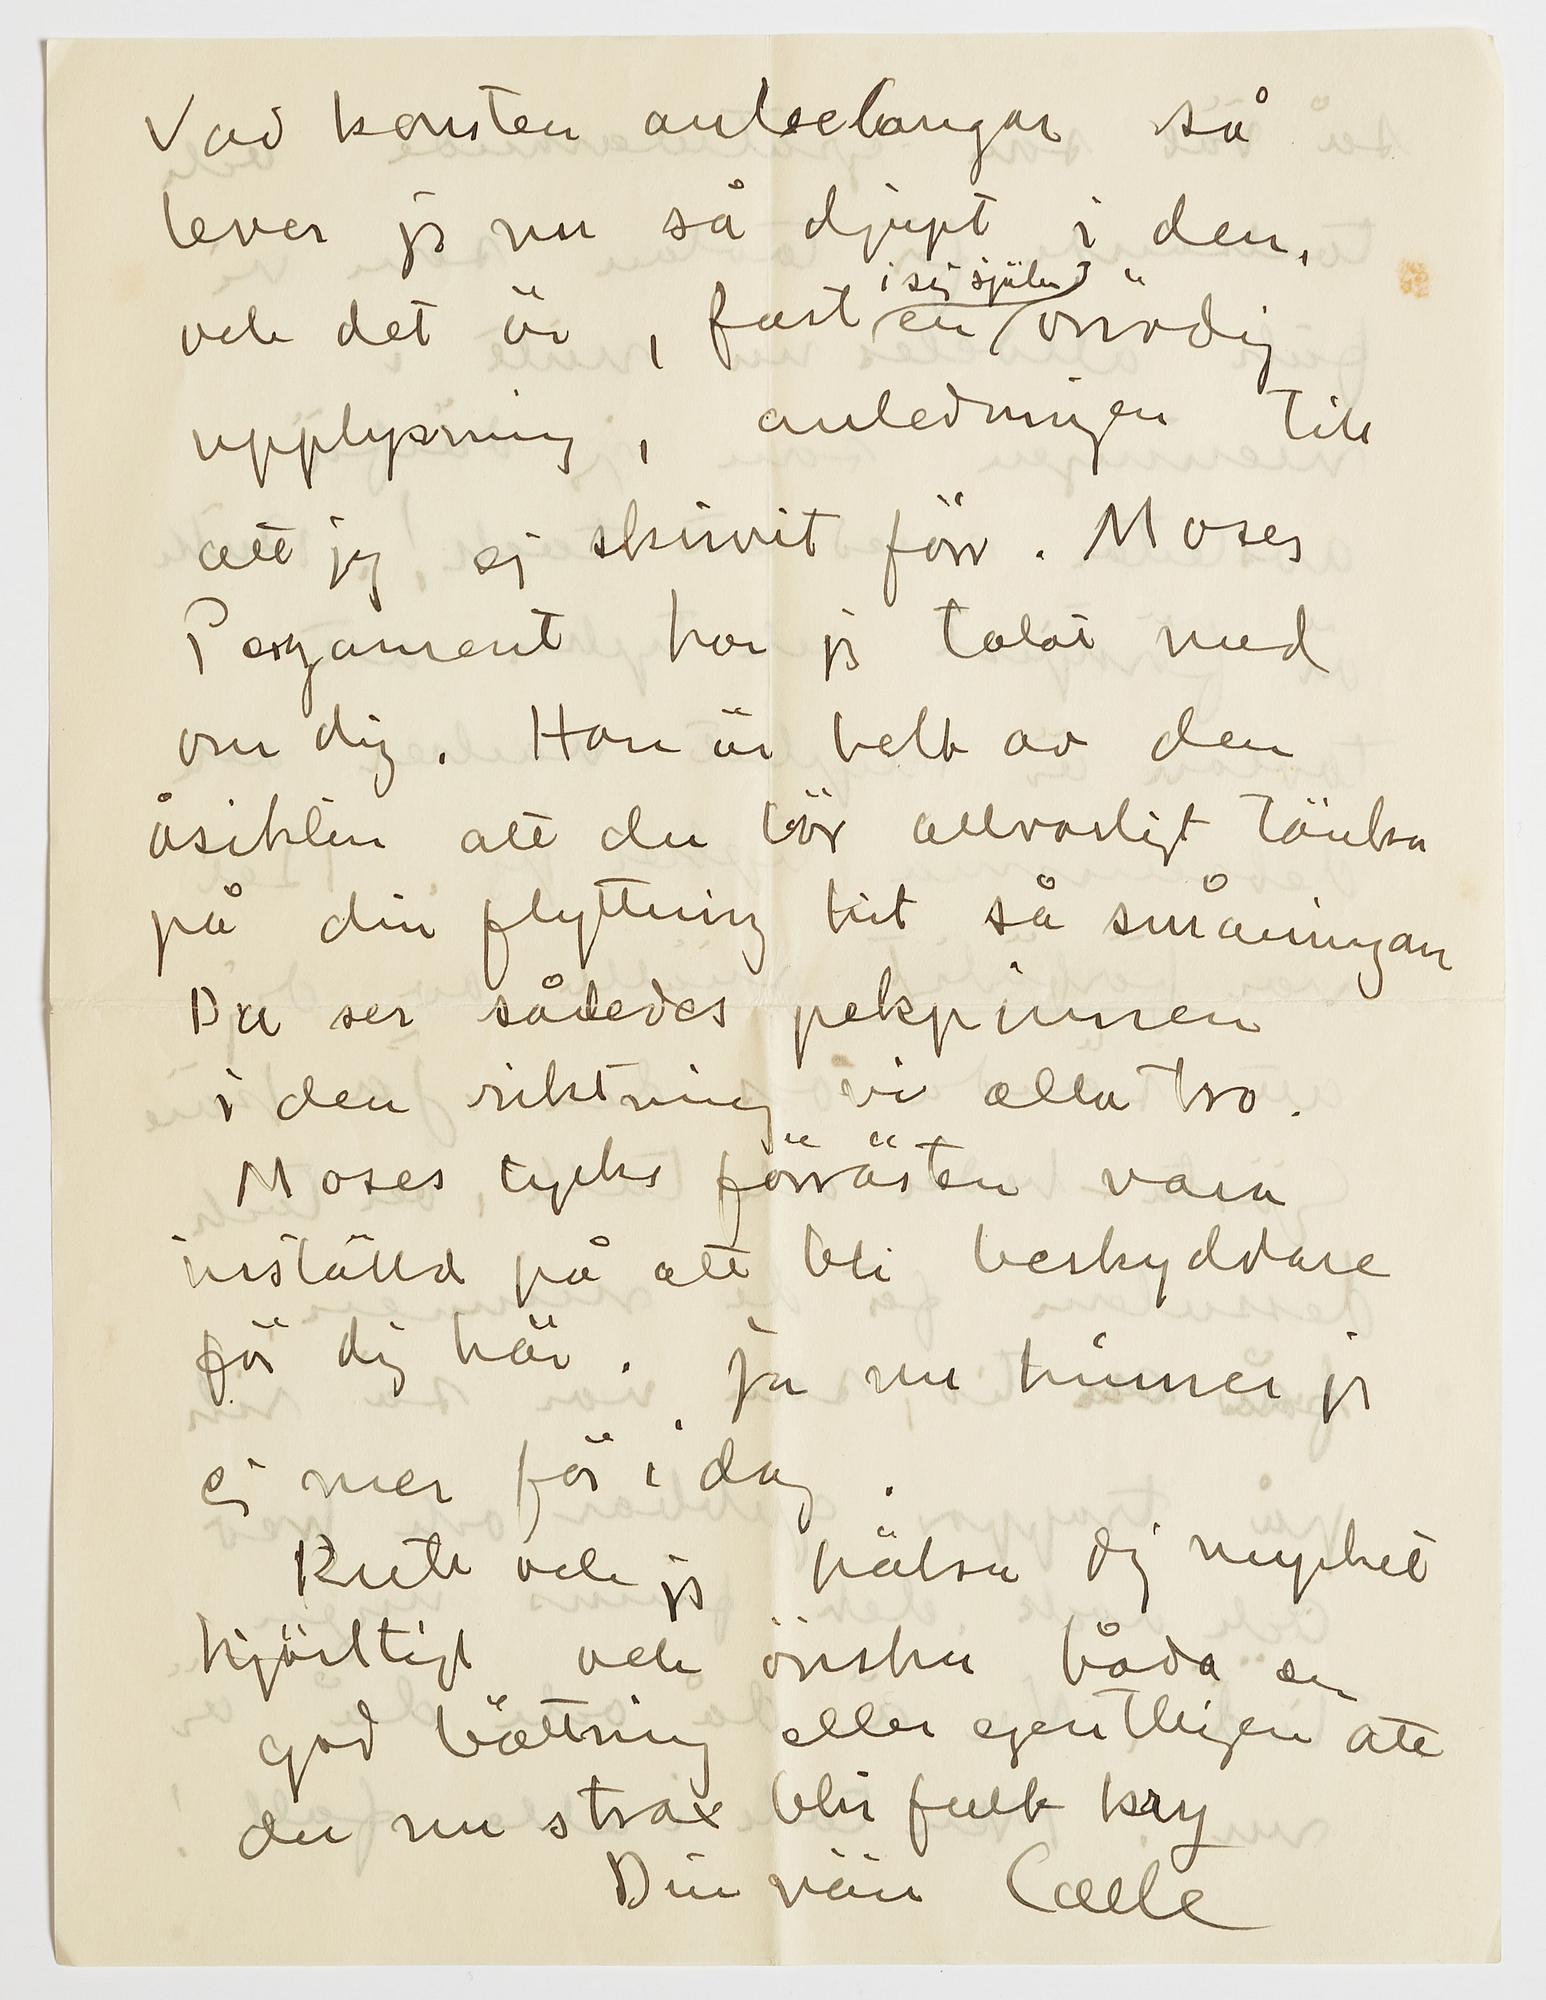 Vad konsten anbelangar så
lever jg nu så djupt i den,
och det är, fast en i sig själv onödig
upplysning, anledningen till
att jg ej skrivit förr. Moses
Pergament har jg talat med
om dig. Han är helt av den
åsikten att du bör allvarligt tänka
på din flyttning hit så småningom
Du ser således pekpinnen
i den riktning vi alla tro.
Moses tycks förrästen vara
inställd på att bli beskyddare
för dig här. Ja nu hinner jg
ej mer för i dag.
Ruth och jg hälsa dig mycket
hjärtligt och önska båda en
god bättring eller egentligen att
du nu strax blir fullt kry
Din vän Calle